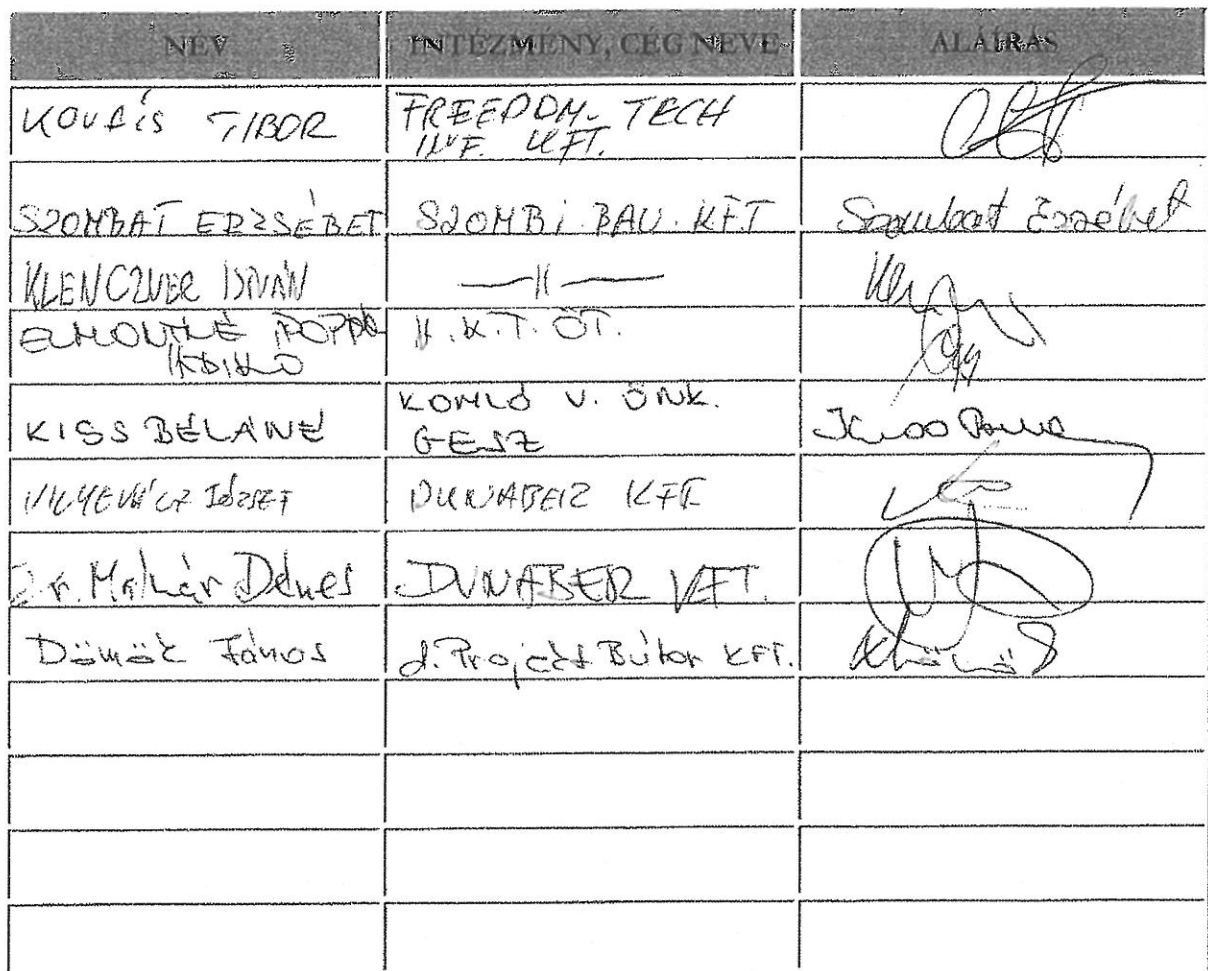 NÉV INTÉZMÉNY, CÉG NEVE ALÁÍRÁS
KOVÁCS TIBOR FREEDOM-TECH
INF. KFT.
SZOMBAT ERZSÉBET SZOMBI BAU. KFT Szombat Erzsébet
KLENCZNER ISTVÁN —||—
ILDIKÓ
KISS BÉLÁNÉ KOMLÓ V. ÖNK.
GESZ
JÓZSEF DUNABER KFT
Dr. Molnár Dénes DUNABER KFT.
Dömök János d. Projekt Bútor KFT.